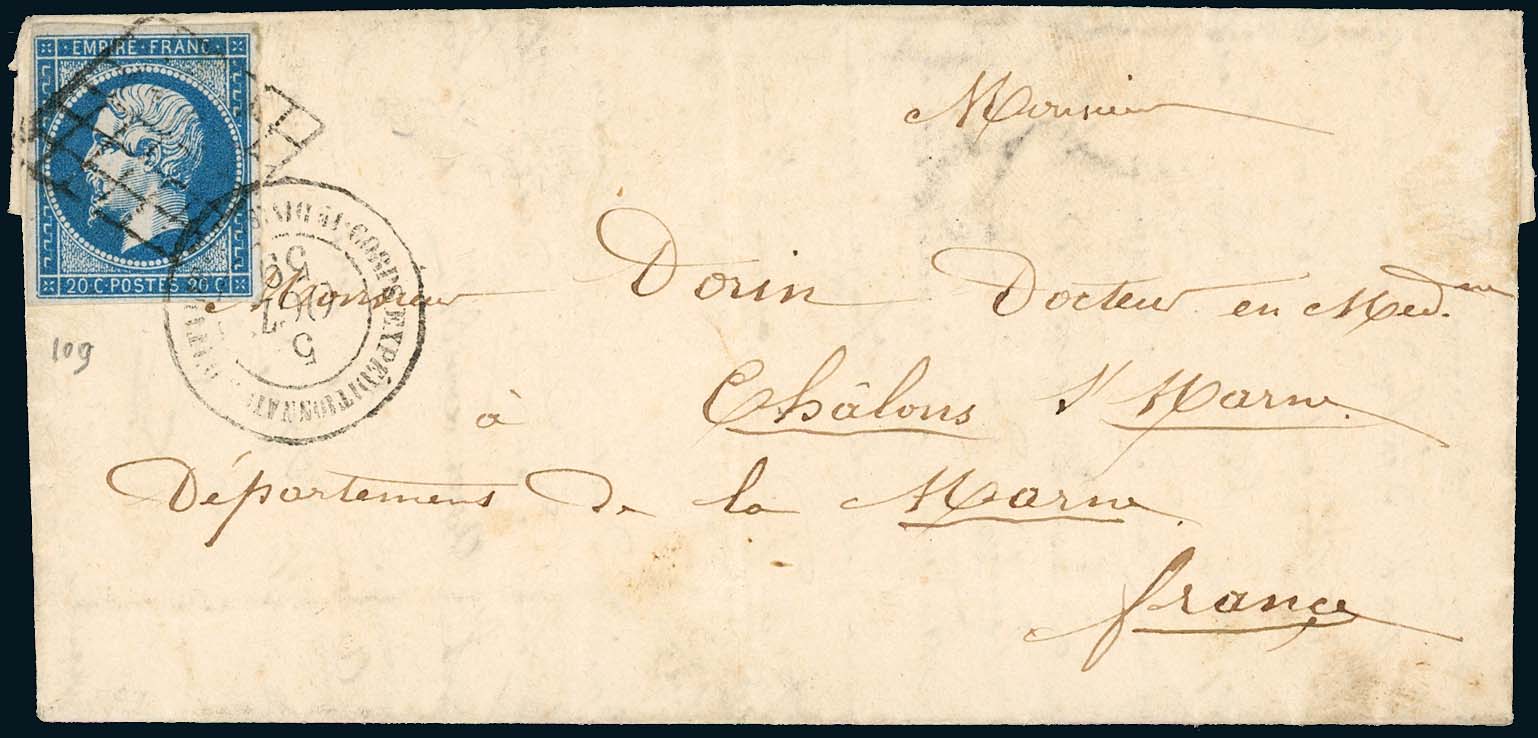 EMPIRE · FRANC ·
20 C · POSTES 20 C
CORPS EXPÉDITIONNAIRE
5
OCT
59
109
Monsieur
Monsieur Dorin Docteur en Med.ne
à Châlons s/ Marne.
Département de la Marne.
france